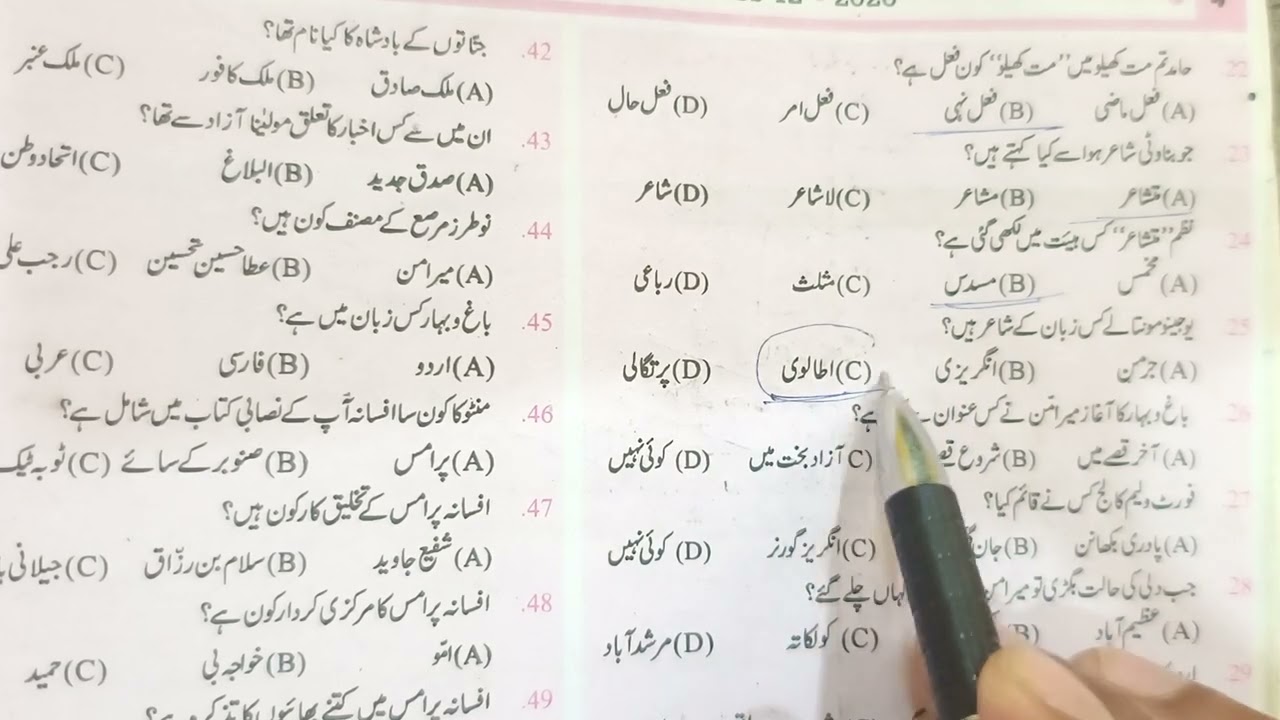 22. حامد تم مت کھیلو میں ”مت کھیلو“ کون فعل ہے؟
(A) فعل ماضی (B) فعل نہی (C) فعل امر (D) فعل حال
23. جو بناوٹی شاعر ہو اسے کیا کہتے ہیں؟
(A) متشاعر (B) مشاعر (C) لاشاعر (D) شاعر
24. نظم ”متشاعر“ کس ہیئت میں لکھی گئی ہے؟
(A) مخمس (B) مسدس (C) مثلث (D) رباعی
25. یوجینو مونتالے کس زبان کے شاعر ہیں؟
(A) جرمن (B) انگریزی (C) اطالوی (D) پرتگالی
26. باغ و بہار کا آغاز میر امّن نے کس عنوان ہے؟
(A) آخر قصے میں (B) شروع قصے (C) آزاد بخت میں (D) کوئی نہیں
27. فورٹ ولیم کالج کس نے قائم کیا؟
(A) پادری بکھانن (B) جان (C) انگریز گورنر (D) کوئی نہیں
28. جب دلی کی حالت بگڑی تو میر امن کہاں چلے گئے؟
(A) عظیم آباد (B) (C) کولکاتہ (D) مرشد آباد
29.
42. جنّاتوں کے بادشاہ کا کیا نام تھا؟
(A) ملک صادق (B) ملک کافور (C) ملک عنبر
43. ان میں سے کس اخبار کا تعلق مولینٰا آزاد سے تھا؟
(A) صدق جدید (B) البلاغ (C) اتحاد وطن
44. نو طرز مرصع کے مصنف کون ہیں؟
(A) میر امن (B) عطا حسین تحسین (C) رجب علی
45. باغ و بہار کس زبان میں ہے؟
(A) اردو (B) فارسی (C) عربی
46. منٹو کا کون سا افسانہ آپ کے نصابی کتاب میں شامل ہے؟
(A) پرامس (B) صنوبر کے سائے (C) ٹوبہ ٹیک
47. افسانہ پرامس کے تخلیق کار کون ہیں؟
(A) شفیع جاوید (B) سلام بن رزّاق (C) جیلانی
48. افسانہ پرامس کا مرکزی کردار کون ہے؟
(A) امّو (B) خواجہ بی (C) حمید
49. افسانہ پرامس میں کتنے بھائیوں کا تذکرہ ہے؟